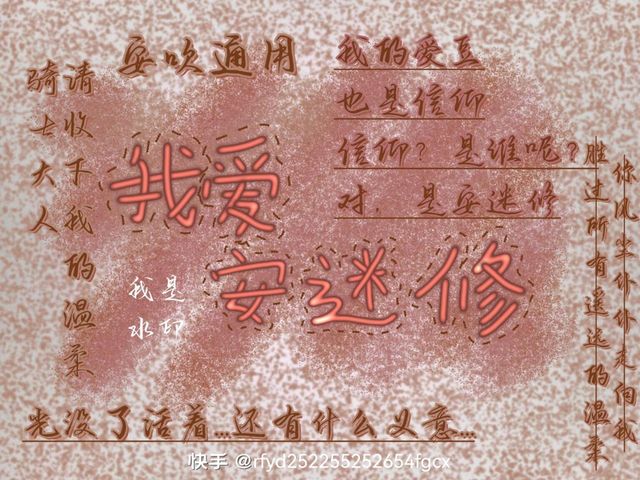 安吹通用
我的爱豆
也是信仰
信仰？是谁呢？
对，是安迷修
请收下我的温柔
骑士大人
我爱
安迷修
我是
水印
你风尘仆仆走向我
胜过所有遥远的温柔
光没了活着...还有什么义意...
快手 @rfyd252255252654fgcx